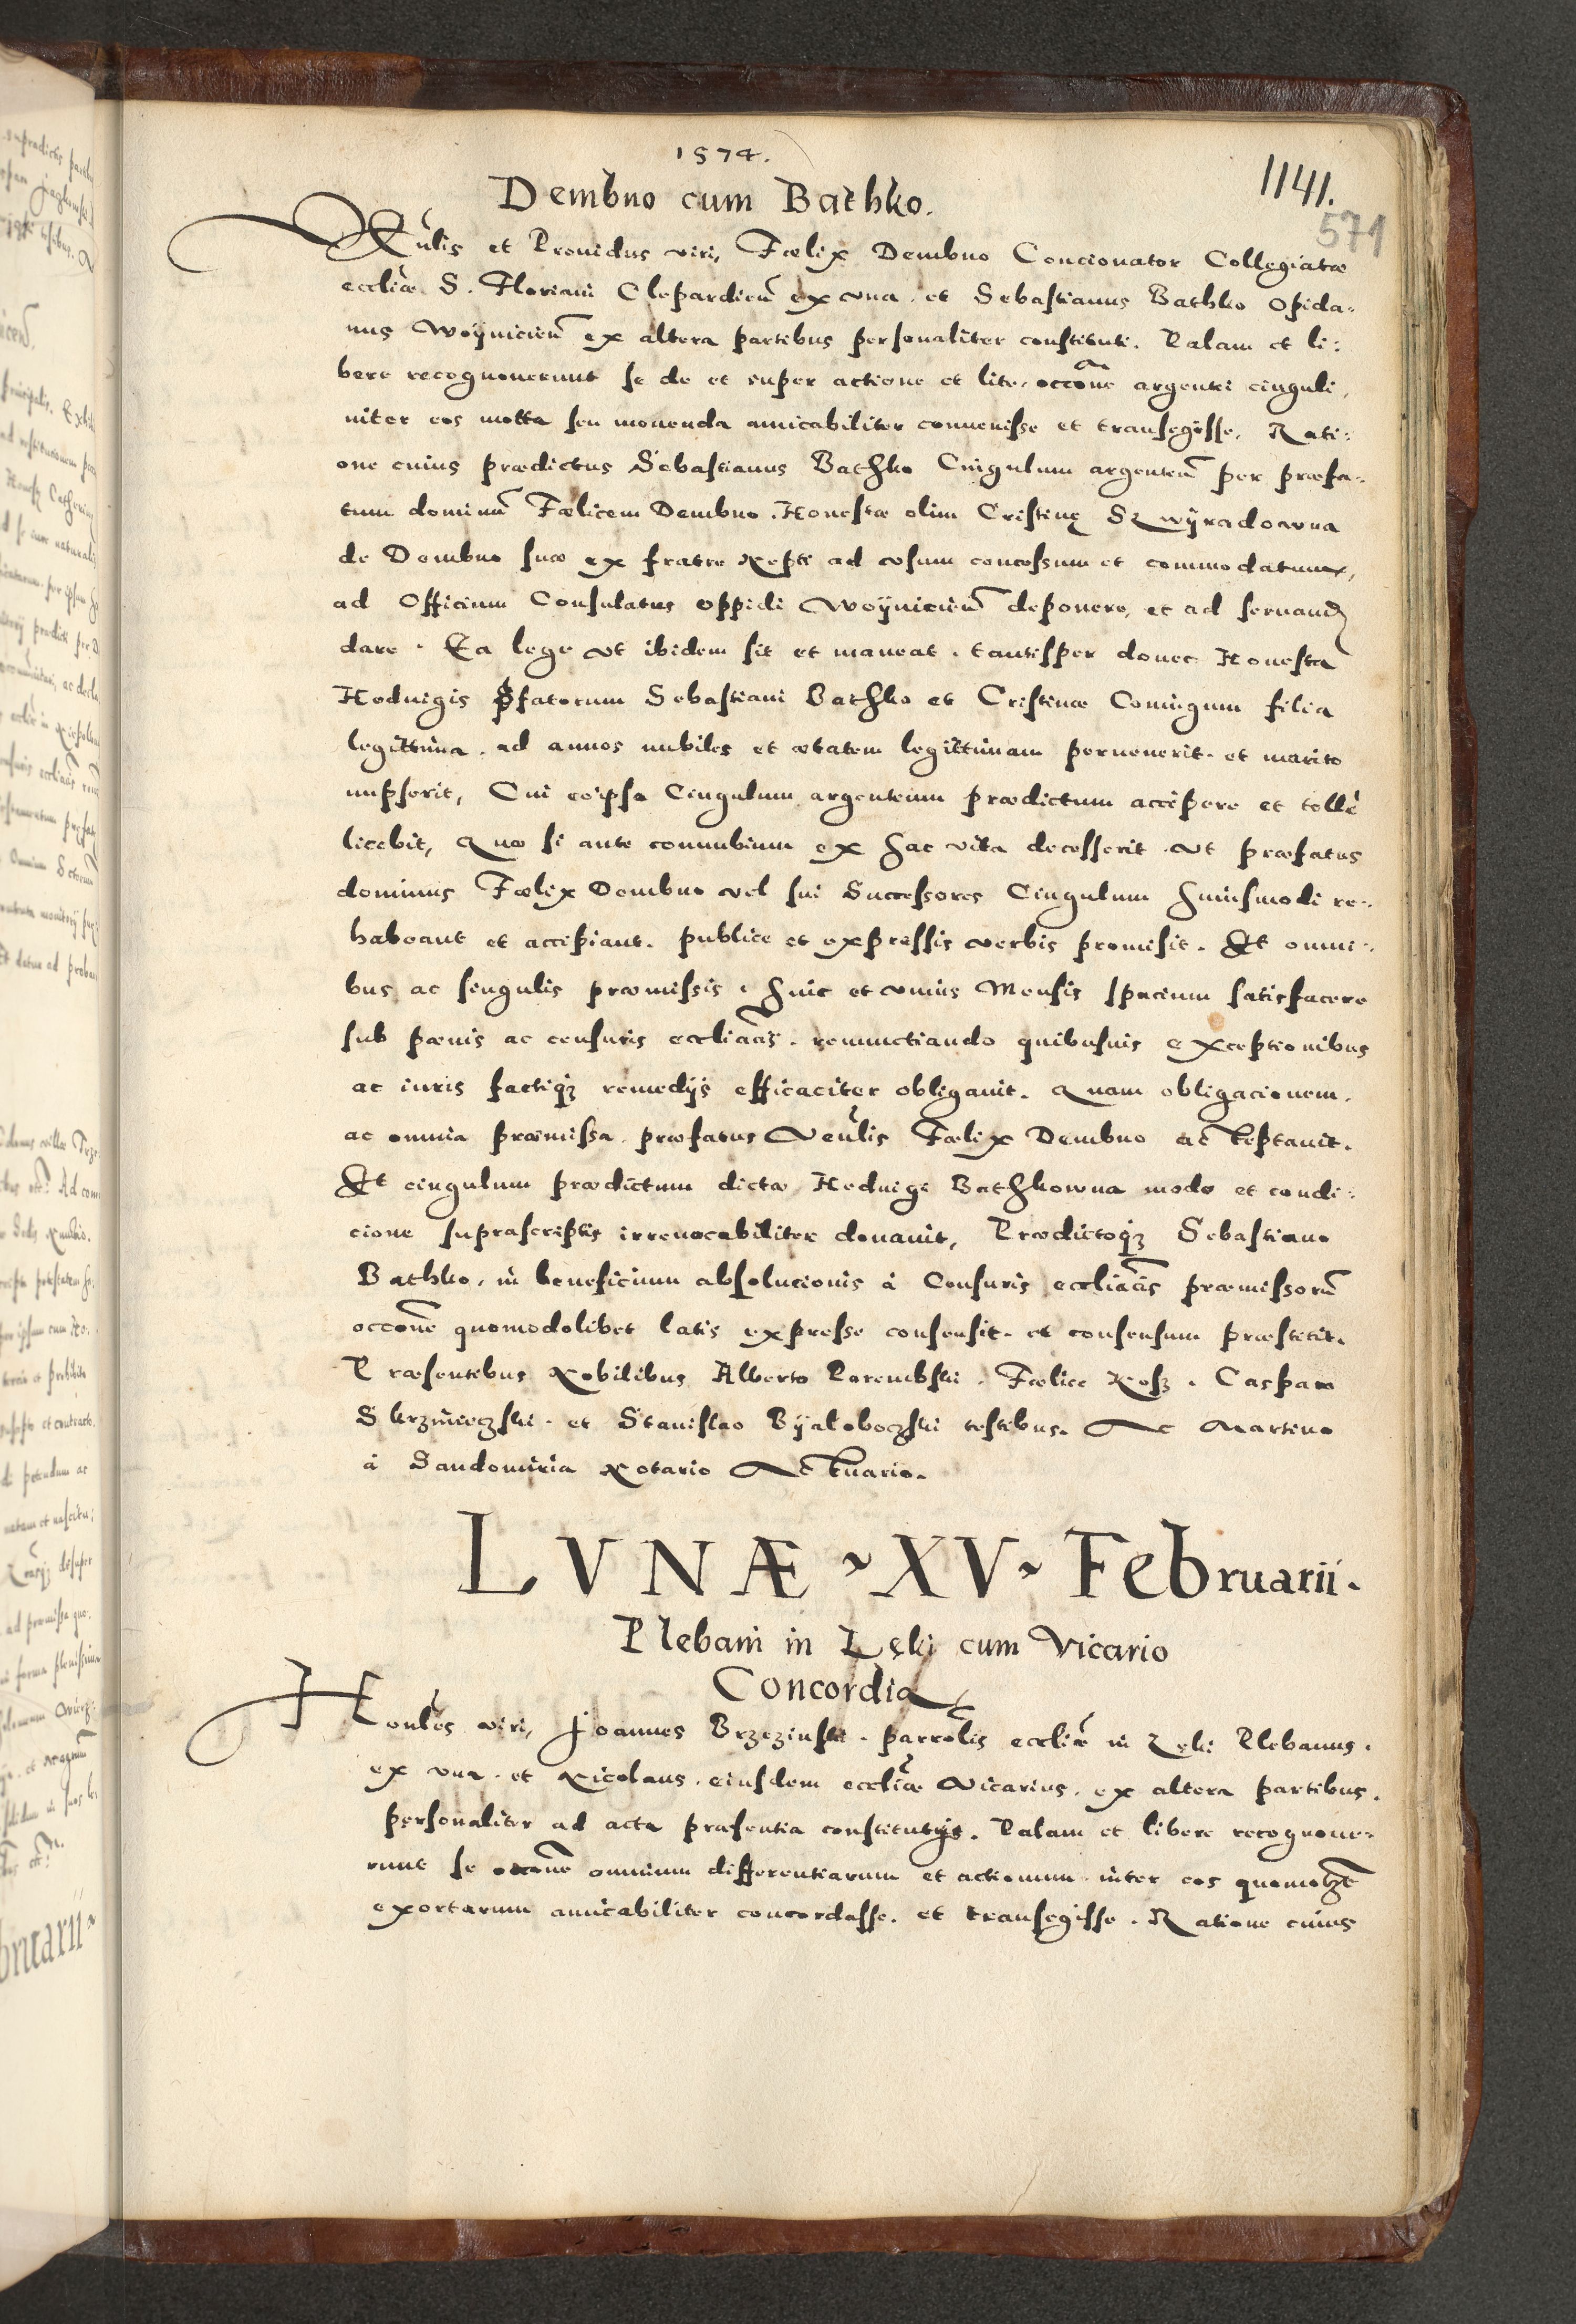 1574.
1141.
571
Dembno cum Bathko.
Vēnlis et Prouidus viri, Fœlix Dembno Concionator Collegiatæ
eccliæ S. Floriani Clepardień ex vna . et Sebastianus Bathko Opida-
nus Woÿnicień ex altera partibus personaliter constituti. Palam et li:
bere recognouerunt se de et super actione et lite, occōne argentei cinguli,
niter eos motta seu mouenda amicabiliter conuenisse et transegisse, Rati:
one cuius prædictus Sebastianus Bathko Cingulum argenteū per præfa-
tum dominū Fælicem Dembno . Honestæ olim Cristinę
de Dembno suæ ex fratre Nepti ad vsum concessum et commodatum,
ad Officium Consulatus oppidi Woÿnicień deponere, et ad seruand
dare . Ea lege vt ibidem sit et maneat . tantisper donec Honesta
Heduigis p̄fatorum Sebastiani Bathko et Cristinæ Coniugum filia
legittima . ad annos nubiles et ætatem legittimam peruenerit . et marito
nupserit, Cui eoipso Cingulum argenteum prædictum accipere et tollē
licebit, Quæ si ante connubium ex hac vita decesserit . vt præfatus
dominus Fælix Dembno vel sui Successores Cingulum huiusmodi re-
habeant et accipiant . publice et expressis verbis promisit . Et omni-
bus ac singulis præmissis . hinc et vnius Mensis spacium satisfacere
sub pœnis ac censuris eccliācis . renunctiando quibusuis exceptionibus
ac iuris factiqȝ remedijs efficaciter obligauit . Quam obligacionem .
ac omnia præmissa . præfatus Venlis Fælix Dembno acceptauit .
Et cingulum prædictum dictæ Heduigi Bathkowna modo et condi:
cione suprascriptis irreuocabiliter donauit, Prædictoqȝ Sebastiano
Bathko, in beneficium absolucionis à Censuris eccliācis præmissorū
occōne quomodolibet latis expresse consensit . et consensum præstitit .
Præsentibus Nobilibus Alberto Porembski . Fælice . Caspare
et Stanislao Bÿaloboczski testibus . Ac Martino
à Sandomiria Notario Actuario .
LVNÆ ~ XV ~ Februarii .
Plebani in Lęki cum Vicario
Concordia
Honbles viri, Joannes Brzezinski . parrolis eccliæ in Lęki Plebanus .
ex vna . et Nicolaus . eiusdem eccliæ Vicarius . ex altera partibus .
personaliter ad acta præsentia constitutijs . Palam et libere recognoue-
runt se occōne omnium differentiarum et actionum inter eos quomolȝt
exortarum amicabiliter concordasse . et transegisse . Ratione cuius